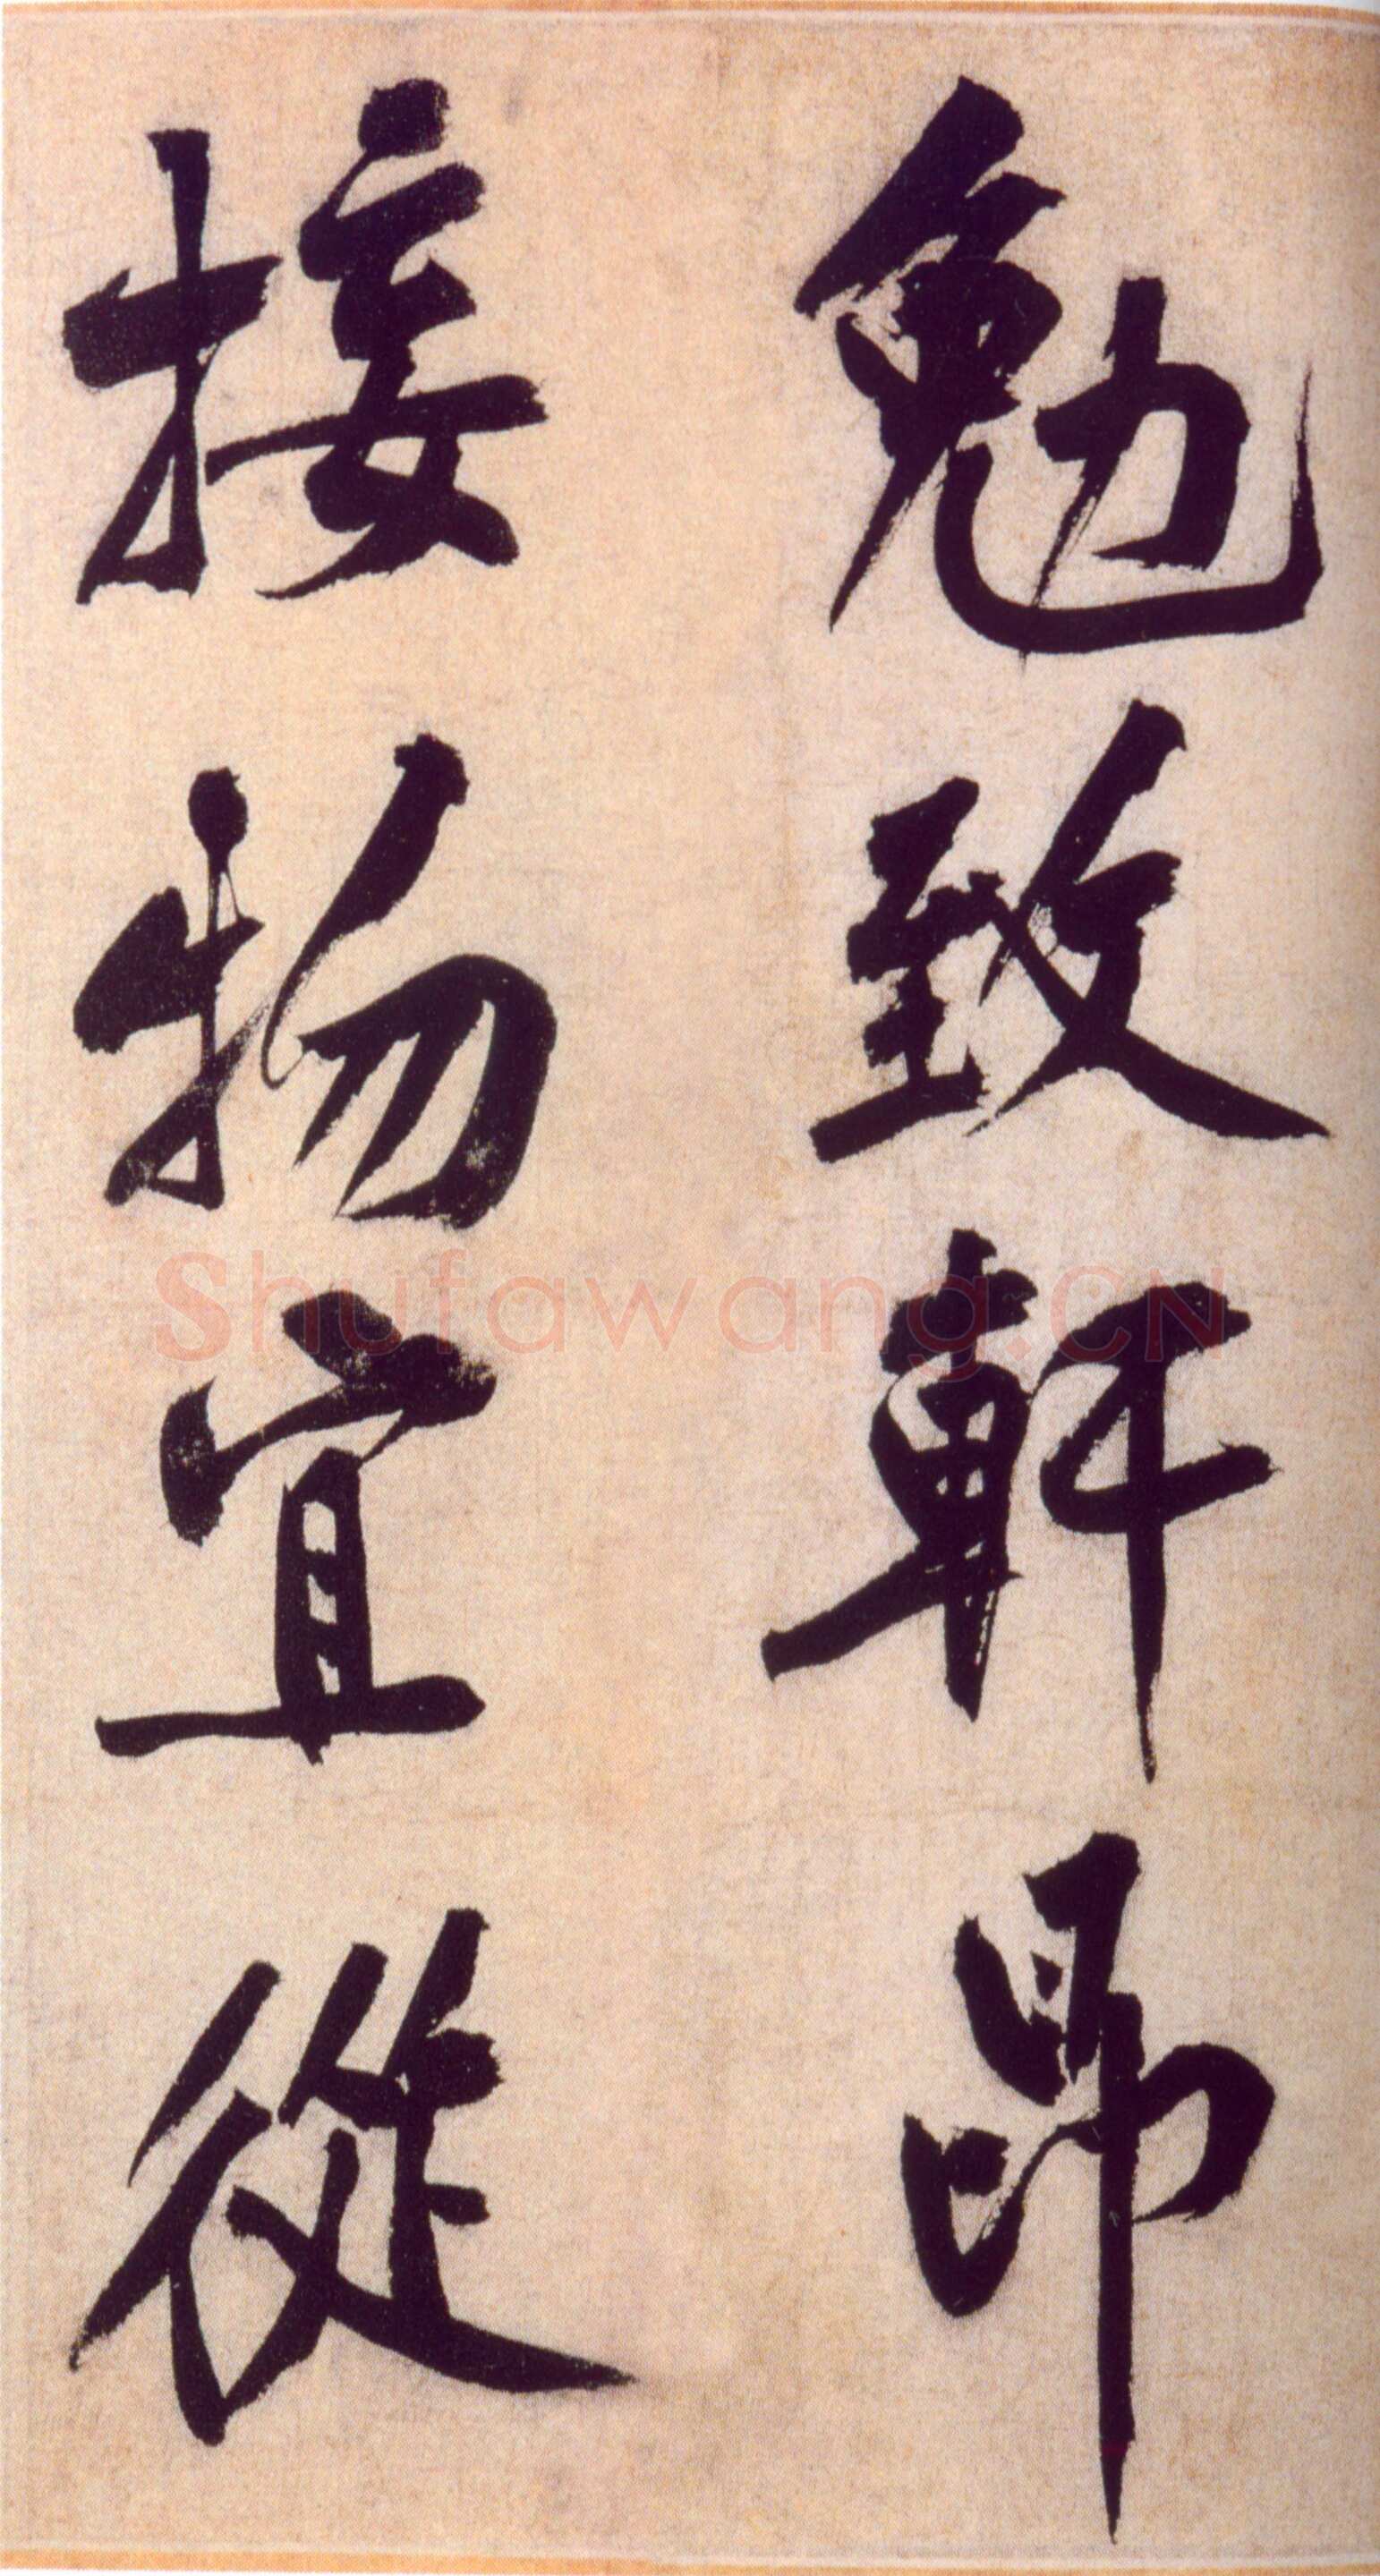 勉致軒昂
接物宜從
Shufawang.CN